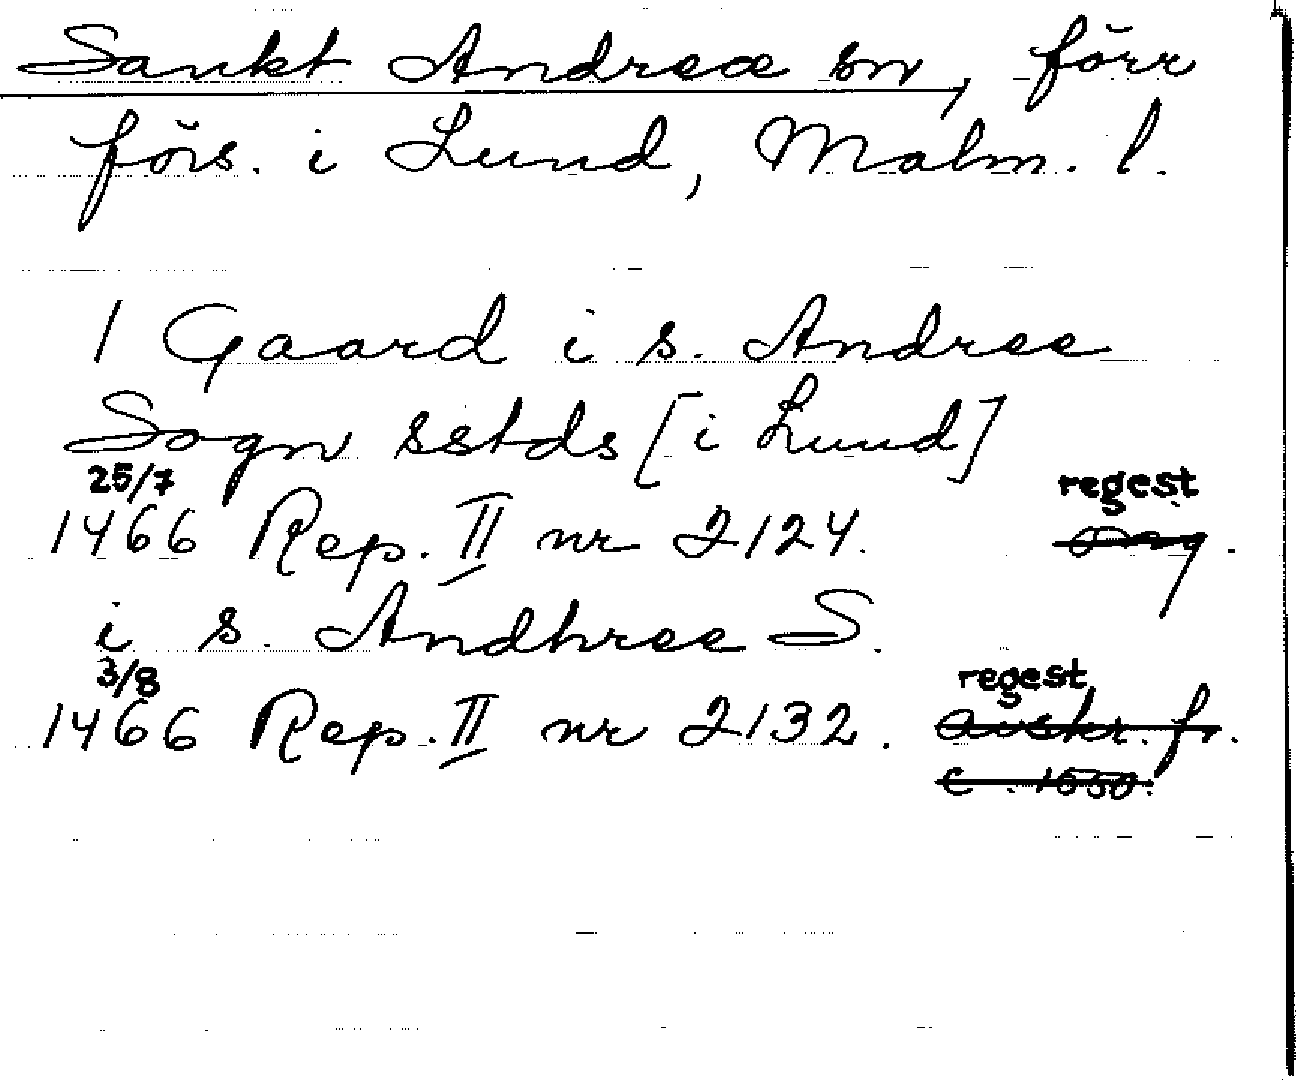 Sankt Andreæ sn, förr
förs. i Lund, Malm. l.
1 Gaard i s. Andree
Sogn sstds [i Lund]
25/7
1466 Rep. II nr 2124. regest
i s. Andhree S.
3/8
1466 Rep. II nr 2132. regest
avskr. fr.
c. 1550.